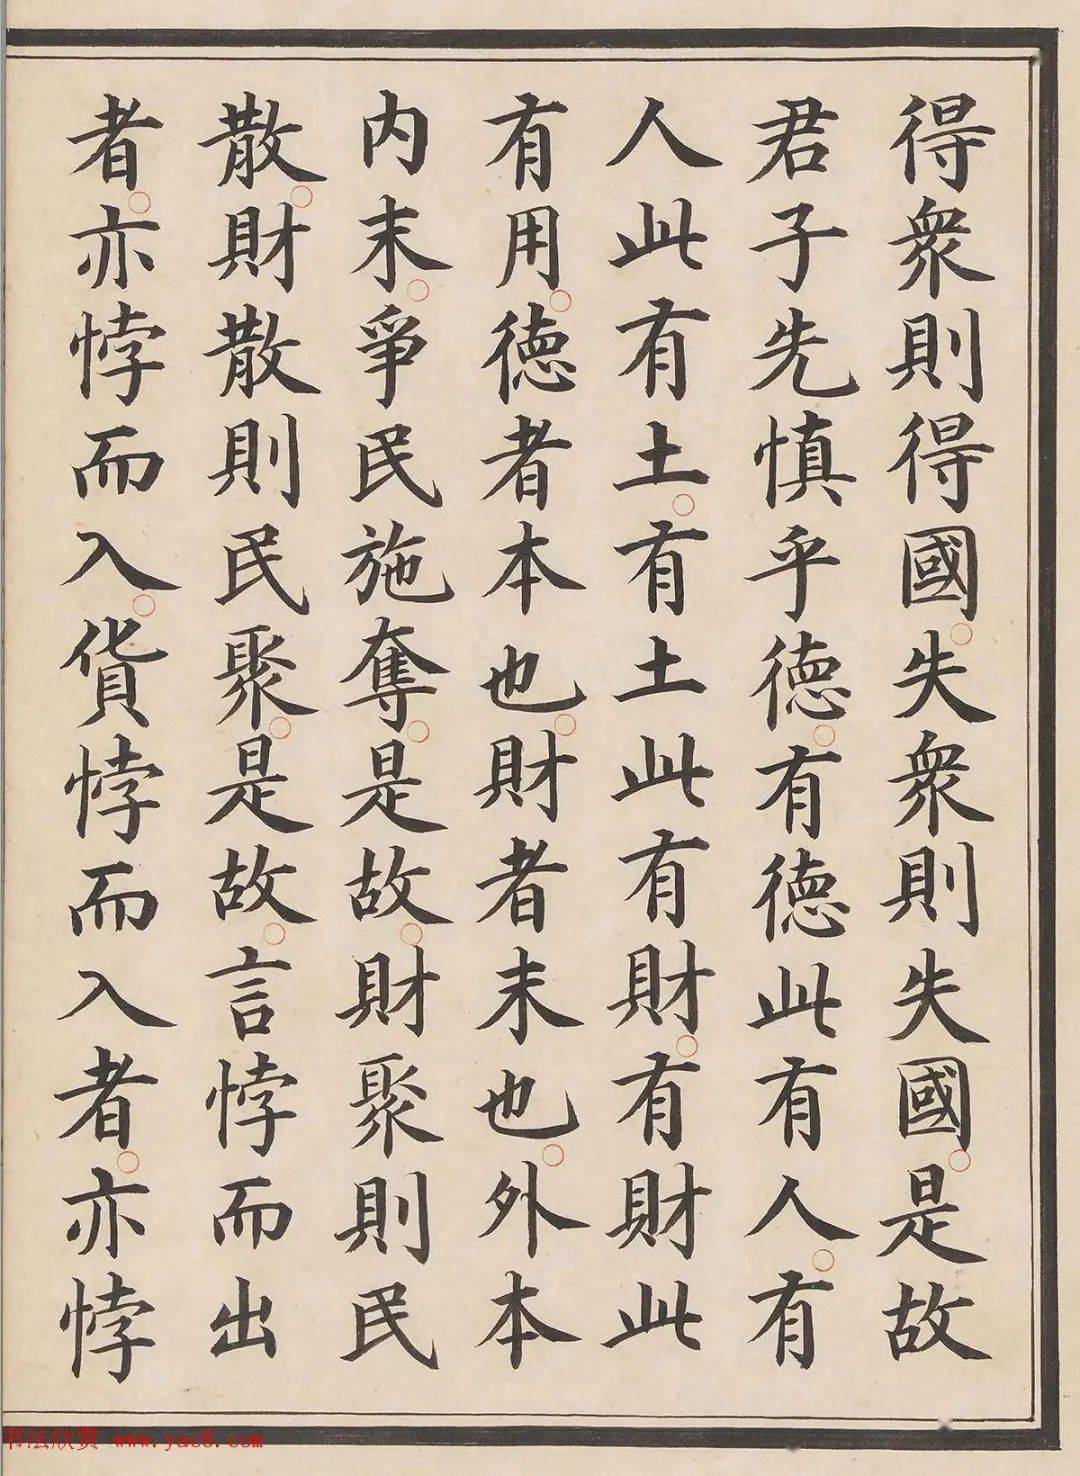 得衆則得國。失衆則失國。是故
君子先慎乎德。有德此有人。有
人此有土。有土此有財。有財此
有用。德者本也。財者末也。外本
內末。爭民施奪。是故。財聚則民
散。財散則民聚。是故。言悖而出
者。亦悖而入。貨悖而入者。亦悖
书法欣赏 www.yac8.com